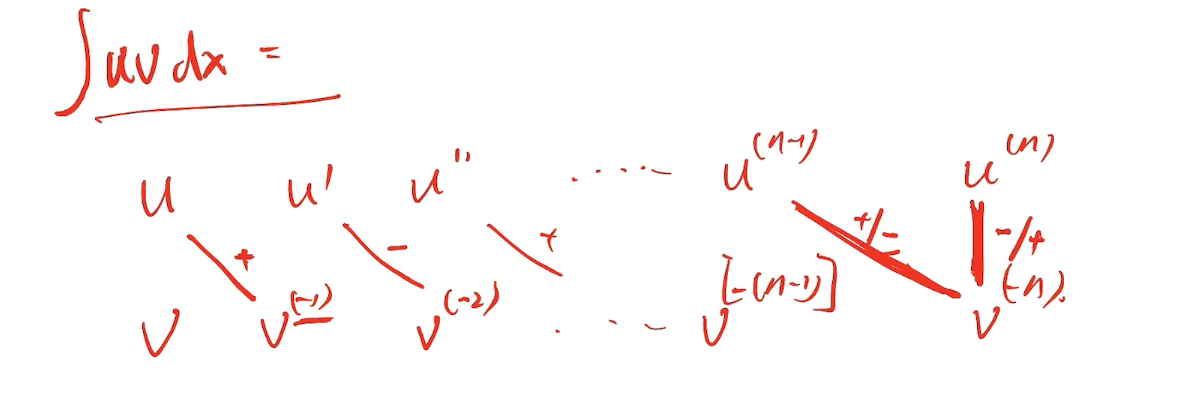 ∫uv dx =
u u' u'' ..... u^(n-1) u^(n)
+ - + +/- -/+
v v^(-1) v^(-2) . . - v^[-(n-1)] v^(-n).